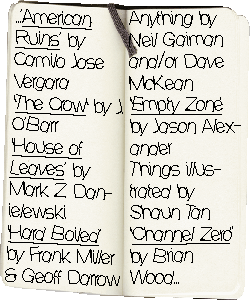 ...'American
Ruins' by
Camilo Jose
Vergara
'The Crow' by J.
O'Barr
'House of
Leaves' by
Mark Z. Dan-
ielewski
'Hard Boiled'
by Frank Miller
& Geoff Darrow
Anything by
Neil Gaiman
and/or Dave
McKean
'Empty Zone'
by Jason Alex-
ander
Things illus-
trated by
Shaun Tan
'Channel Zero'
by Brian
Wood...